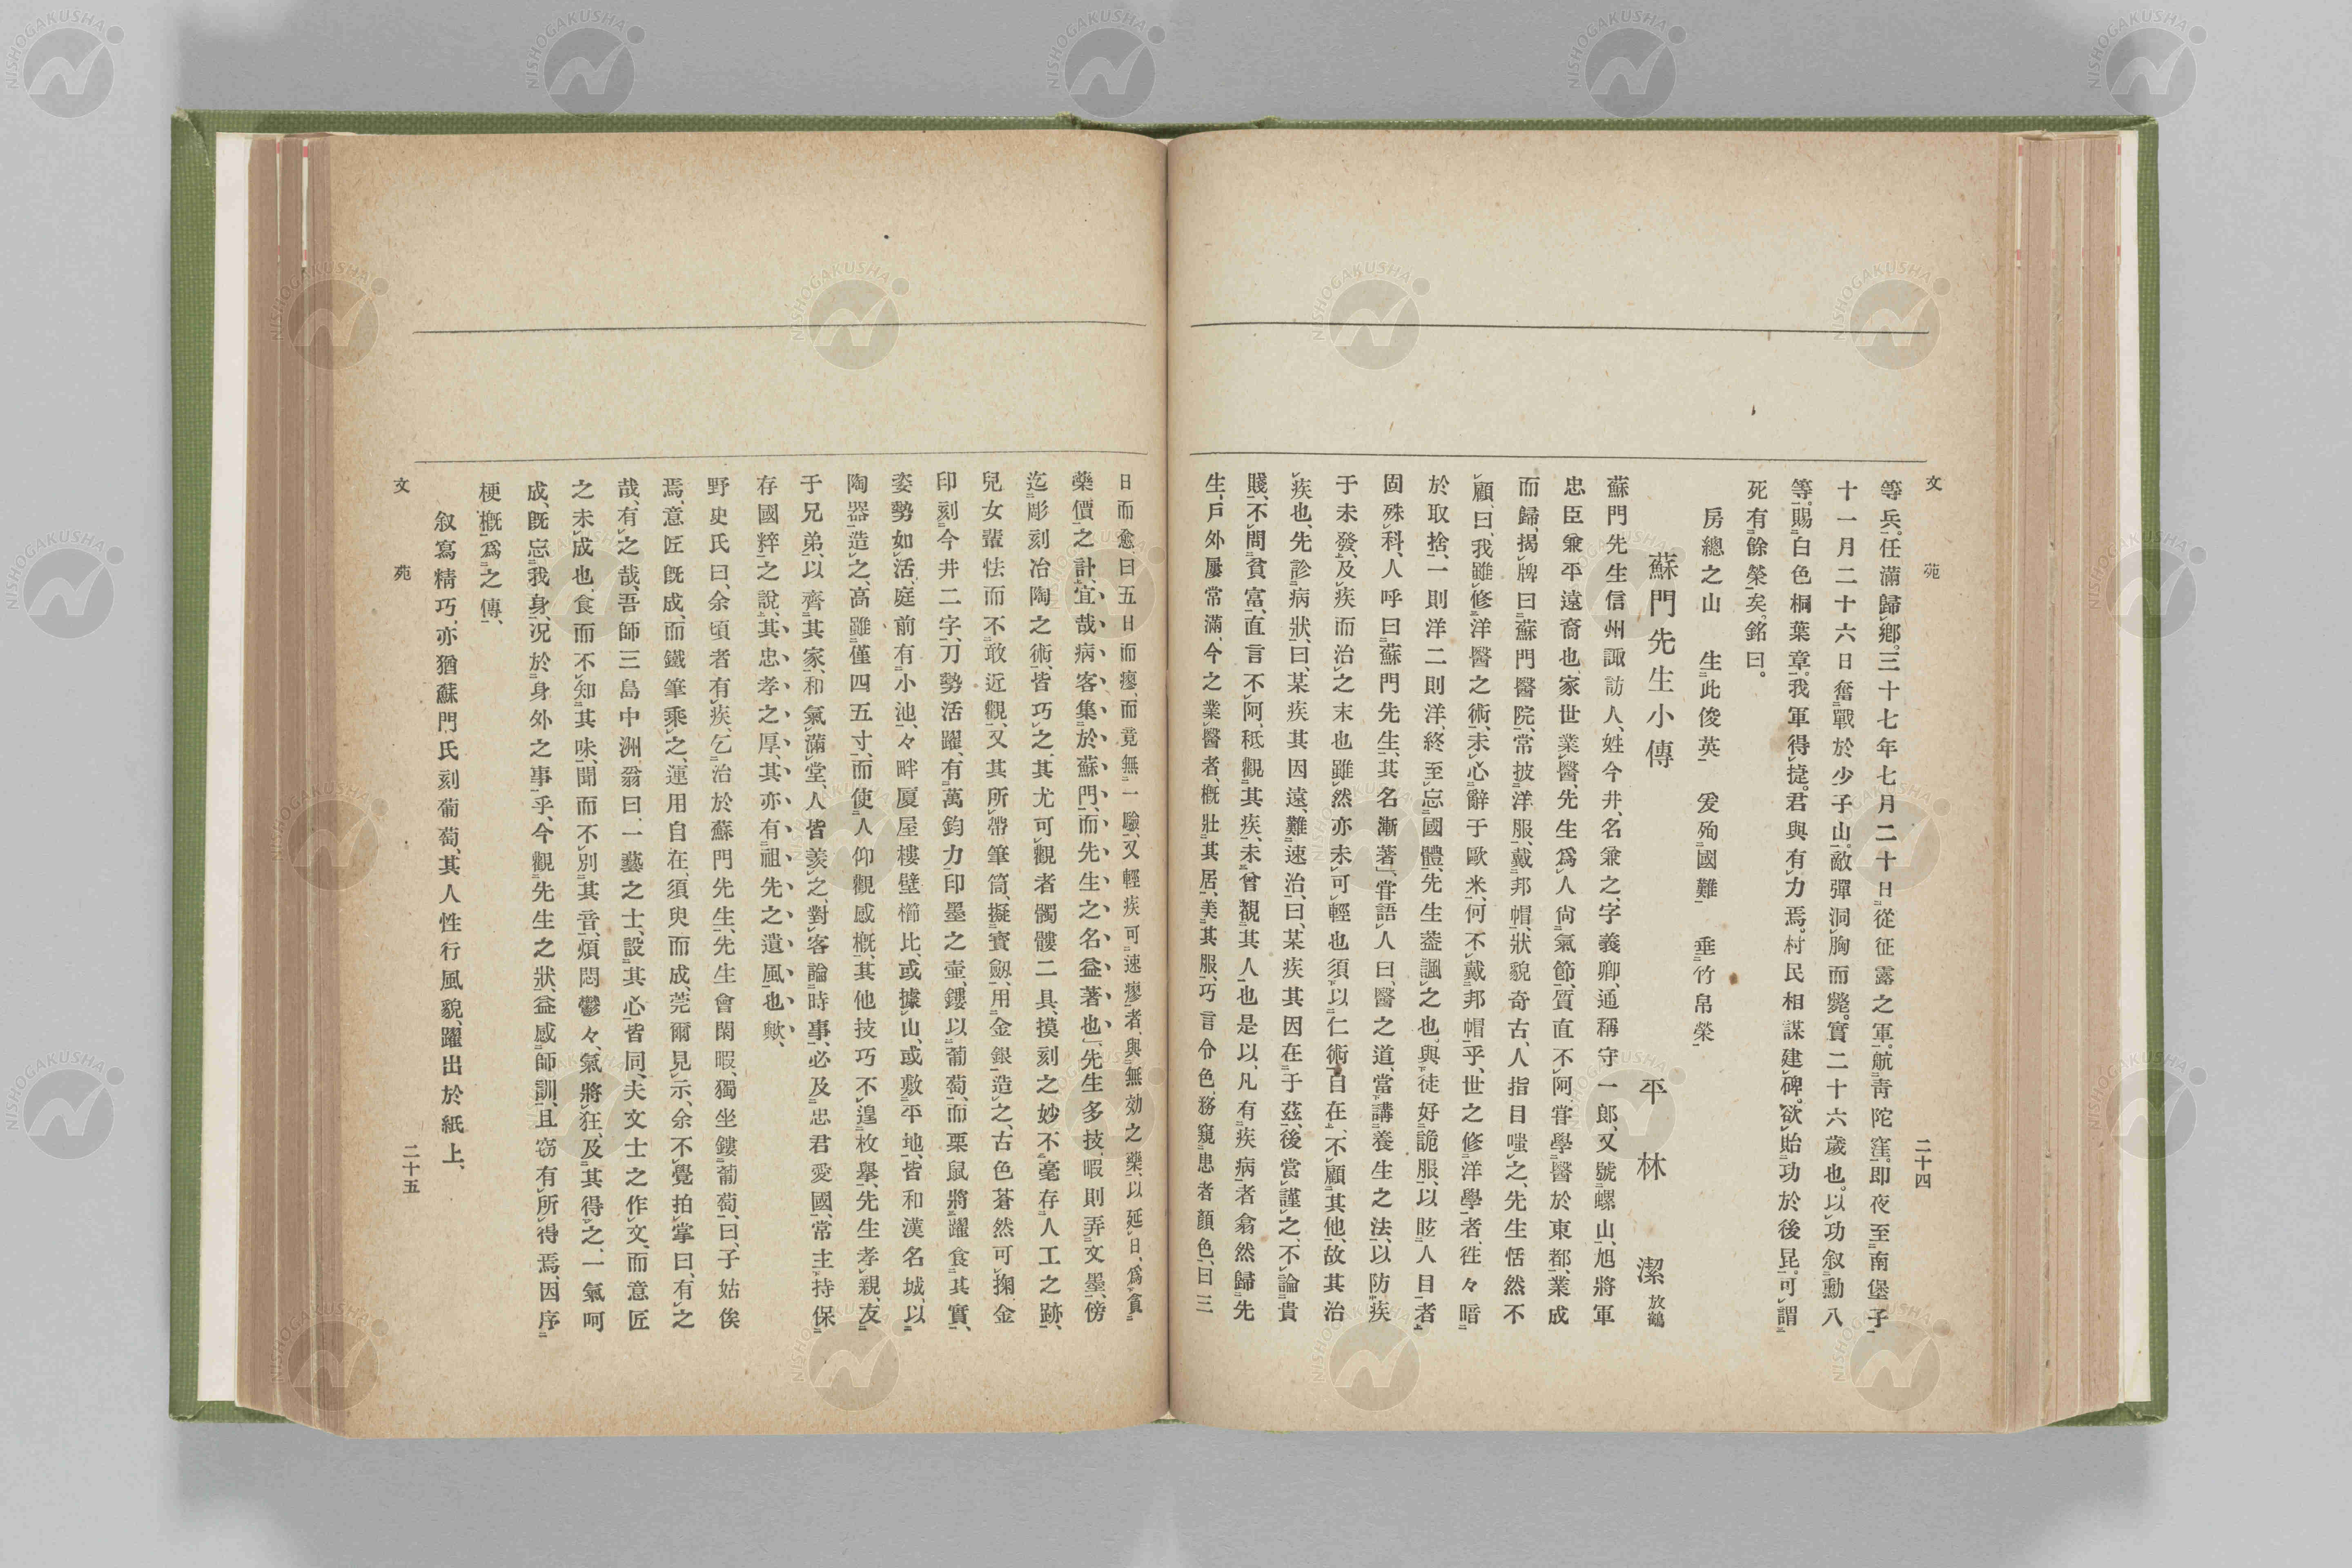 文苑
二十四
等兵。任滿歸鄕。三十七年七月二十日從征露之軍。航靑陀窪。卽夜至南堡子
十一月二十六日奮戰於少子山。敵彈洞胸而斃。實二十六歲也。以功叙勳八
等。賜白色桐葉章。我軍得捷。君與有力焉。村民相謀建碑。欲貽功於後昆。可謂
死有餘榮矣。銘曰。
房總之山 生此俊英 爰殉國難 垂竹帛榮
蘇門先生小傳 平林潔放鶴
蘇門先生信州諏訪人、姓今井、名兼之、字義卿、通稱守一郎、又號螺山、旭將軍
忠臣兼平遠裔也、家世業醫、先生爲人尙氣節、質直不阿、甞學醫於東都、業成
而歸、揭牌曰蘇門醫院、常披洋服、戴邦帽、狀貌奇古、人指目嗤之、先生恬然不
顧、曰、我雖修洋醫之術、未心辭于歐米、何不戴邦帽乎、世之修洋學者、徃々暗
於取捨、一則洋二則洋、終至忘國體、先生蓋諷之也。與徒好詭服、以眩人目者
固殊科、人呼曰蘇門先生、其名漸著」、甞語人曰、醫之道、當講養生之法、以防疾
于未發、及疾而治之末也雖然亦未可輕也須以仁術自在、不顧其他、故其治
疾也、先診病狀、曰、某疾其因遠、難速治、曰、某疾其因在于茲、後當謹之、不論貴
賤、不問貧富、直言不阿、秪觀其疾、未曾覩其人也是以、凡有疾病者翕然歸先
生、戶外屢常滿、今之業醫者、槪壯其居、美其服、巧言令色、務窺患者顏色、曰三
日而愈曰五日而瘳、而竟無一驗、又輕疾可速瘳者、與無効之藥、以延日、爲貪
藥價之計、宜哉病客集於蘇門、而先生之名益著也」、先生多技、暇則弄文墨、傍
迄彫刻冶陶之術、皆巧之、其尤可觀者髑髏二具、摸刻之妙不毫存人工之跡、
兒女輩怯而不敢近觀、又其所帶筆筒、擬寶劔、用金銀造之、古色蒼然可掬、金
印刻今井二字、刀勢活躍、有萬鈞力、印墨之壷、鏤以葡萄、而栗鼠將躍食其實、
姿勢如活、庭前有小池、々畔厦屋樓壁櫛比、或據山、或敷平地、皆和漢名城、以
陶器造之、高雖僅四五寸、而使人仰觀感槪、其他技巧不遑枚擧、先生孝親、友
于兄弟、以齊其家、和氣滿堂、人皆羨之、對客論時事、必及忠君愛國、常主持保
存國粹之說、其忠孝之厚、其亦有祖先之遺風也歟、
野史氏曰、余頃者有疾、乞治於蘇門先生、先生會閑暇、獨坐鏤葡萄、曰、子姑俟
焉、意匠旣成、而鐵筆乘之、運用自在、須臾而成、莞爾見示、余不覺拍掌曰、有之
哉、有之哉、吾師三島中洲翁曰、一藝之士、設其心皆同、夫文士之作文、而意匠
之未成也、食而不知其味、聞而不別其音、煩悶鬱々、氣將狂、及其得之、一氣呵
成、旣忘我身、况於身外之事乎、今觀先生之狀、益感師訓、且窃有所得焉、因序
梗槪爲之傳、
叙寫精巧、亦猶蘇門氏刻葡萄、其人性行風貌、躍出於紙上、
文苑
二十五
NISHOGAKUSHA